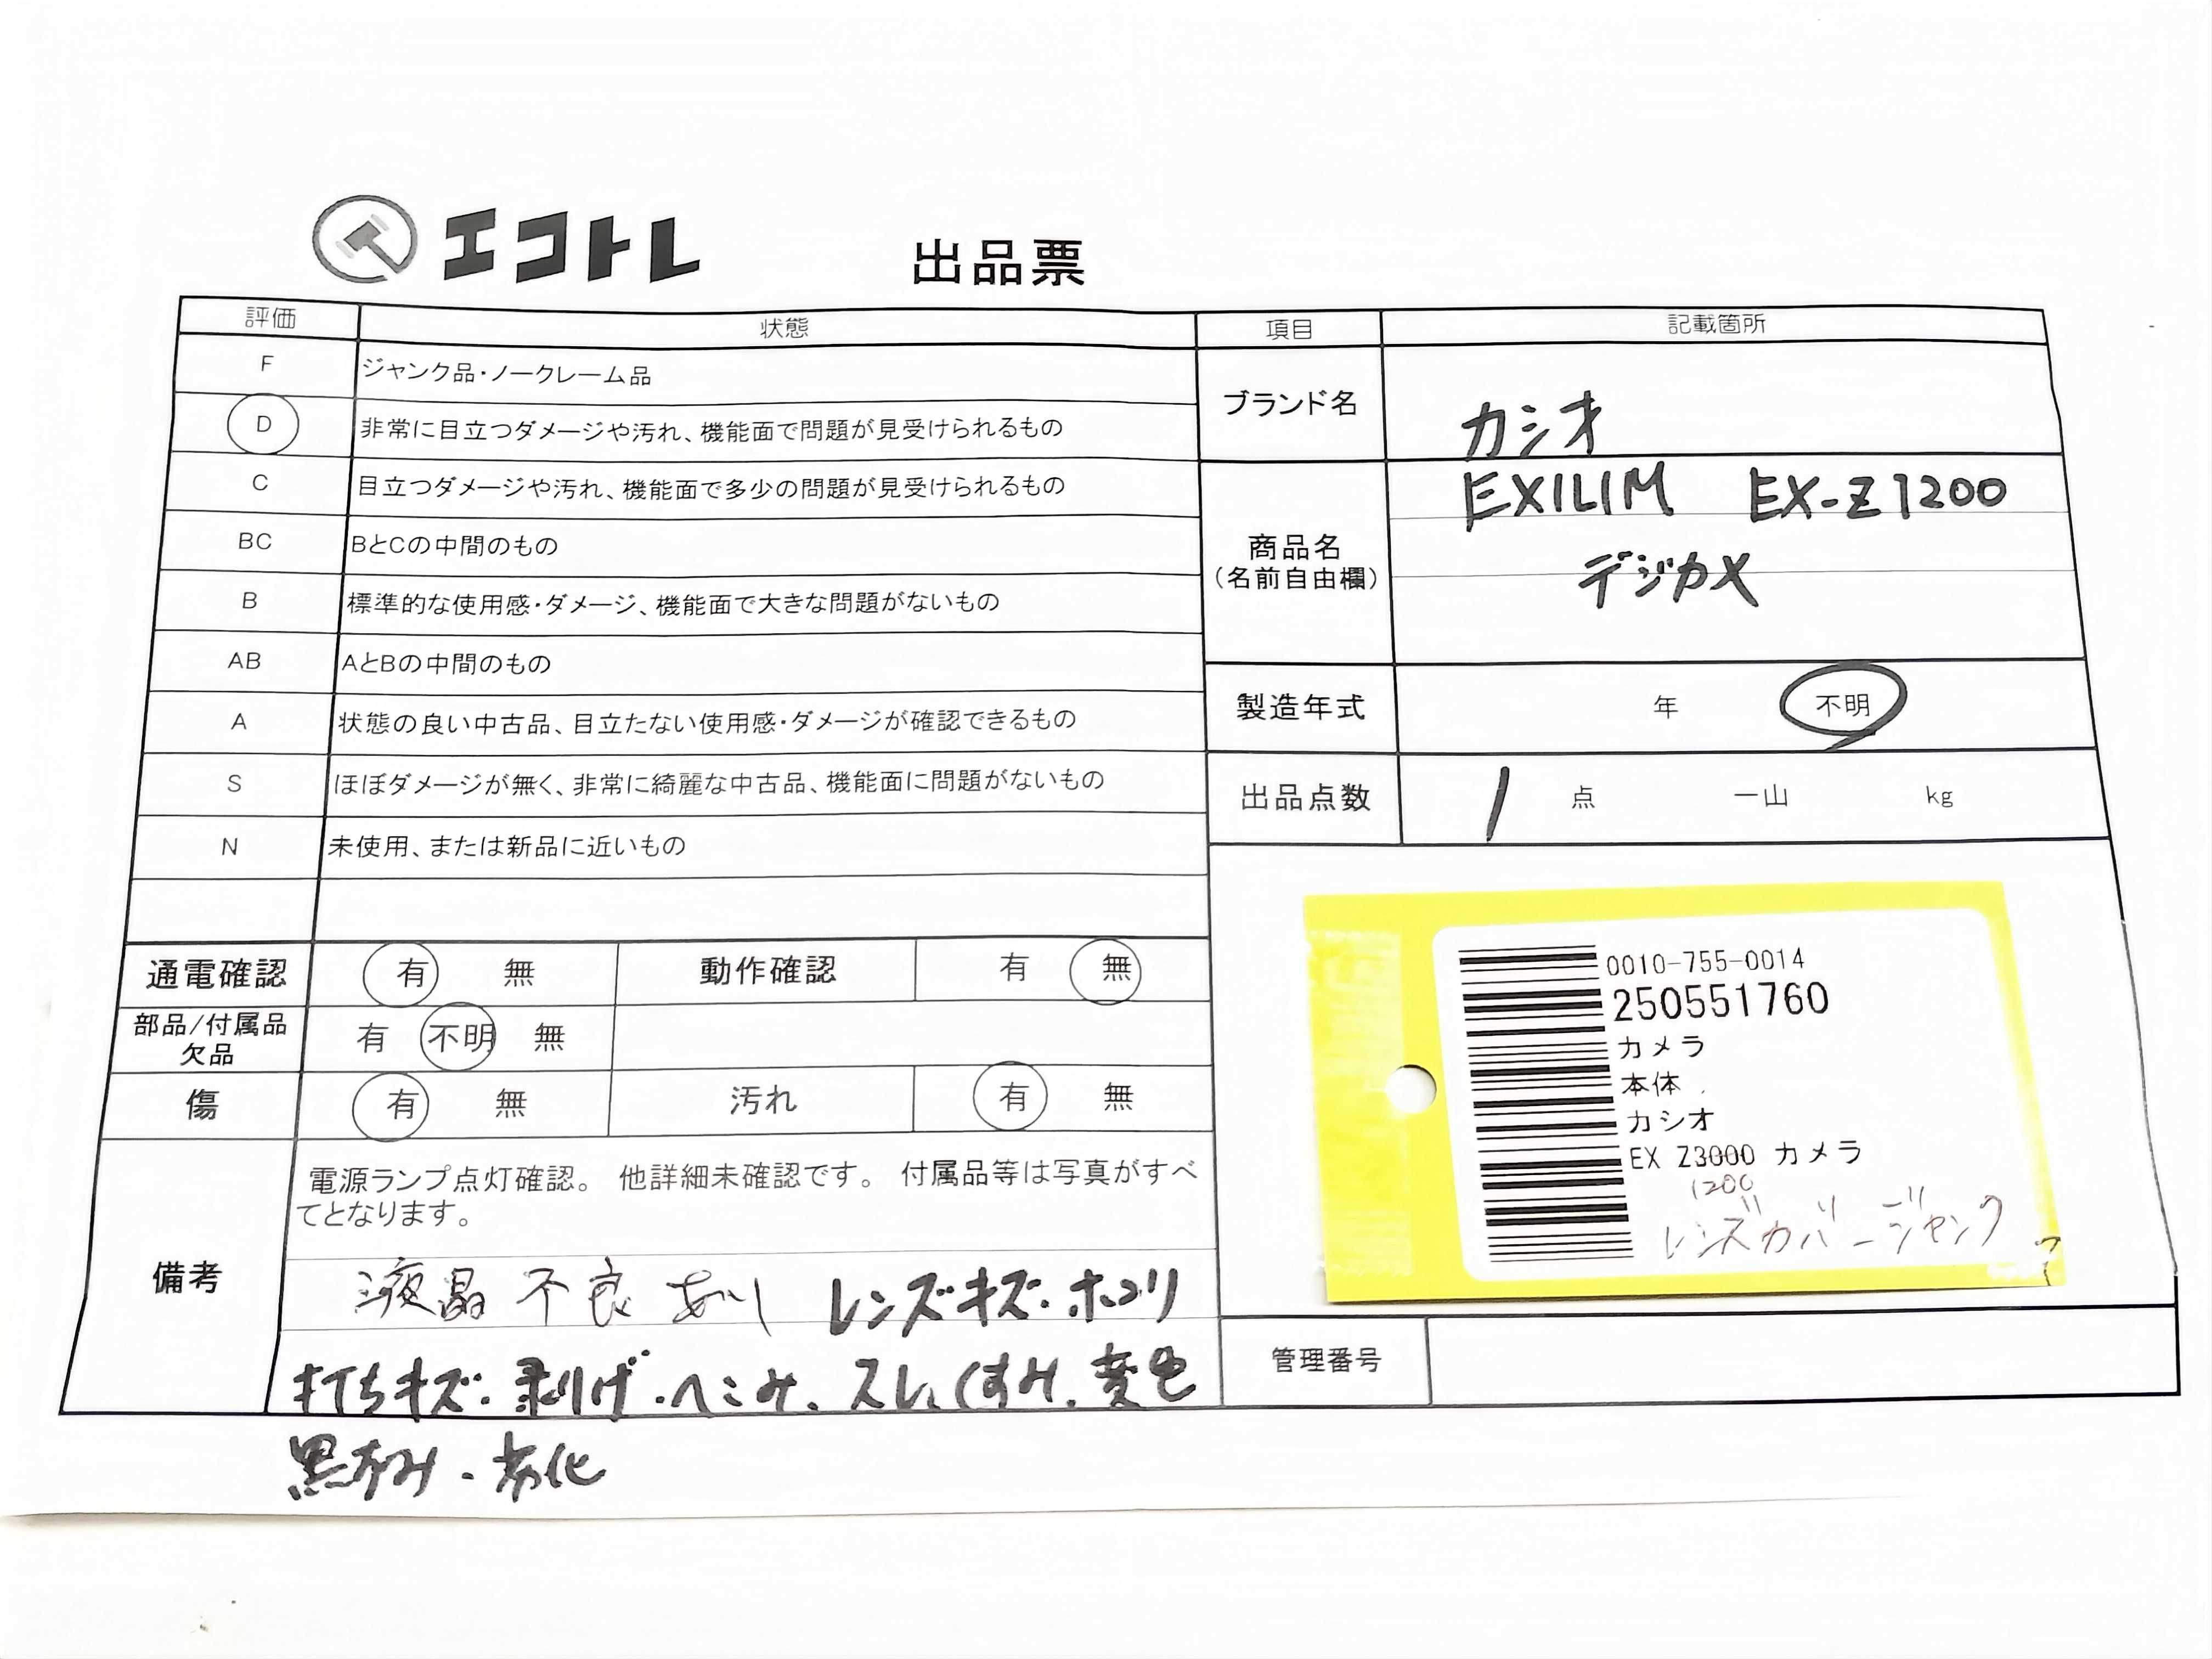 エコトレ
出品票
評価 状態
F ジャンク品・ノークレーム品
D 非常に目立つダメージや汚れ、機能面で問題が見受けられるもの
C 目立つダメージや汚れ、機能面で多少の問題が見受けられるもの
BC BとCの中間のもの
B 標準的な使用感・ダメージ、機能面で大きな問題がないもの
AB AとBの中間のもの
A 状態の良い中古品、目立たない使用感・ダメージが確認できるもの
S ほぼダメージが無く、非常に綺麗な中古品、機能面に問題がないもの
N 未使用、または新品に近いもの
通電確認 有 無 動作確認 有 無
部品/付属品
欠品
有 不明 無
傷 有 無 汚れ 有 無
備考
電源ランプ点灯確認。 他詳細未確認です。 付属品等は写真がすべ
てとなります。
液晶 不良 あり レンズキズ・ホコリ
打ちキズ・剥げ・へこみ、スレ、くすみ、変色
黒ずみ・劣化
項目 記載箇所
ブランド名 カシオ
商品名
(名前自由欄)
EXILIM EX-Z1200
デジカメ
製造年式 年 不明
出品点数 1 点 一山 kg
0010-755-0014
250551760
カメラ
本体
カシオ
EX Z3000 カメラ
1200
レンズカバージャンク
管理番号